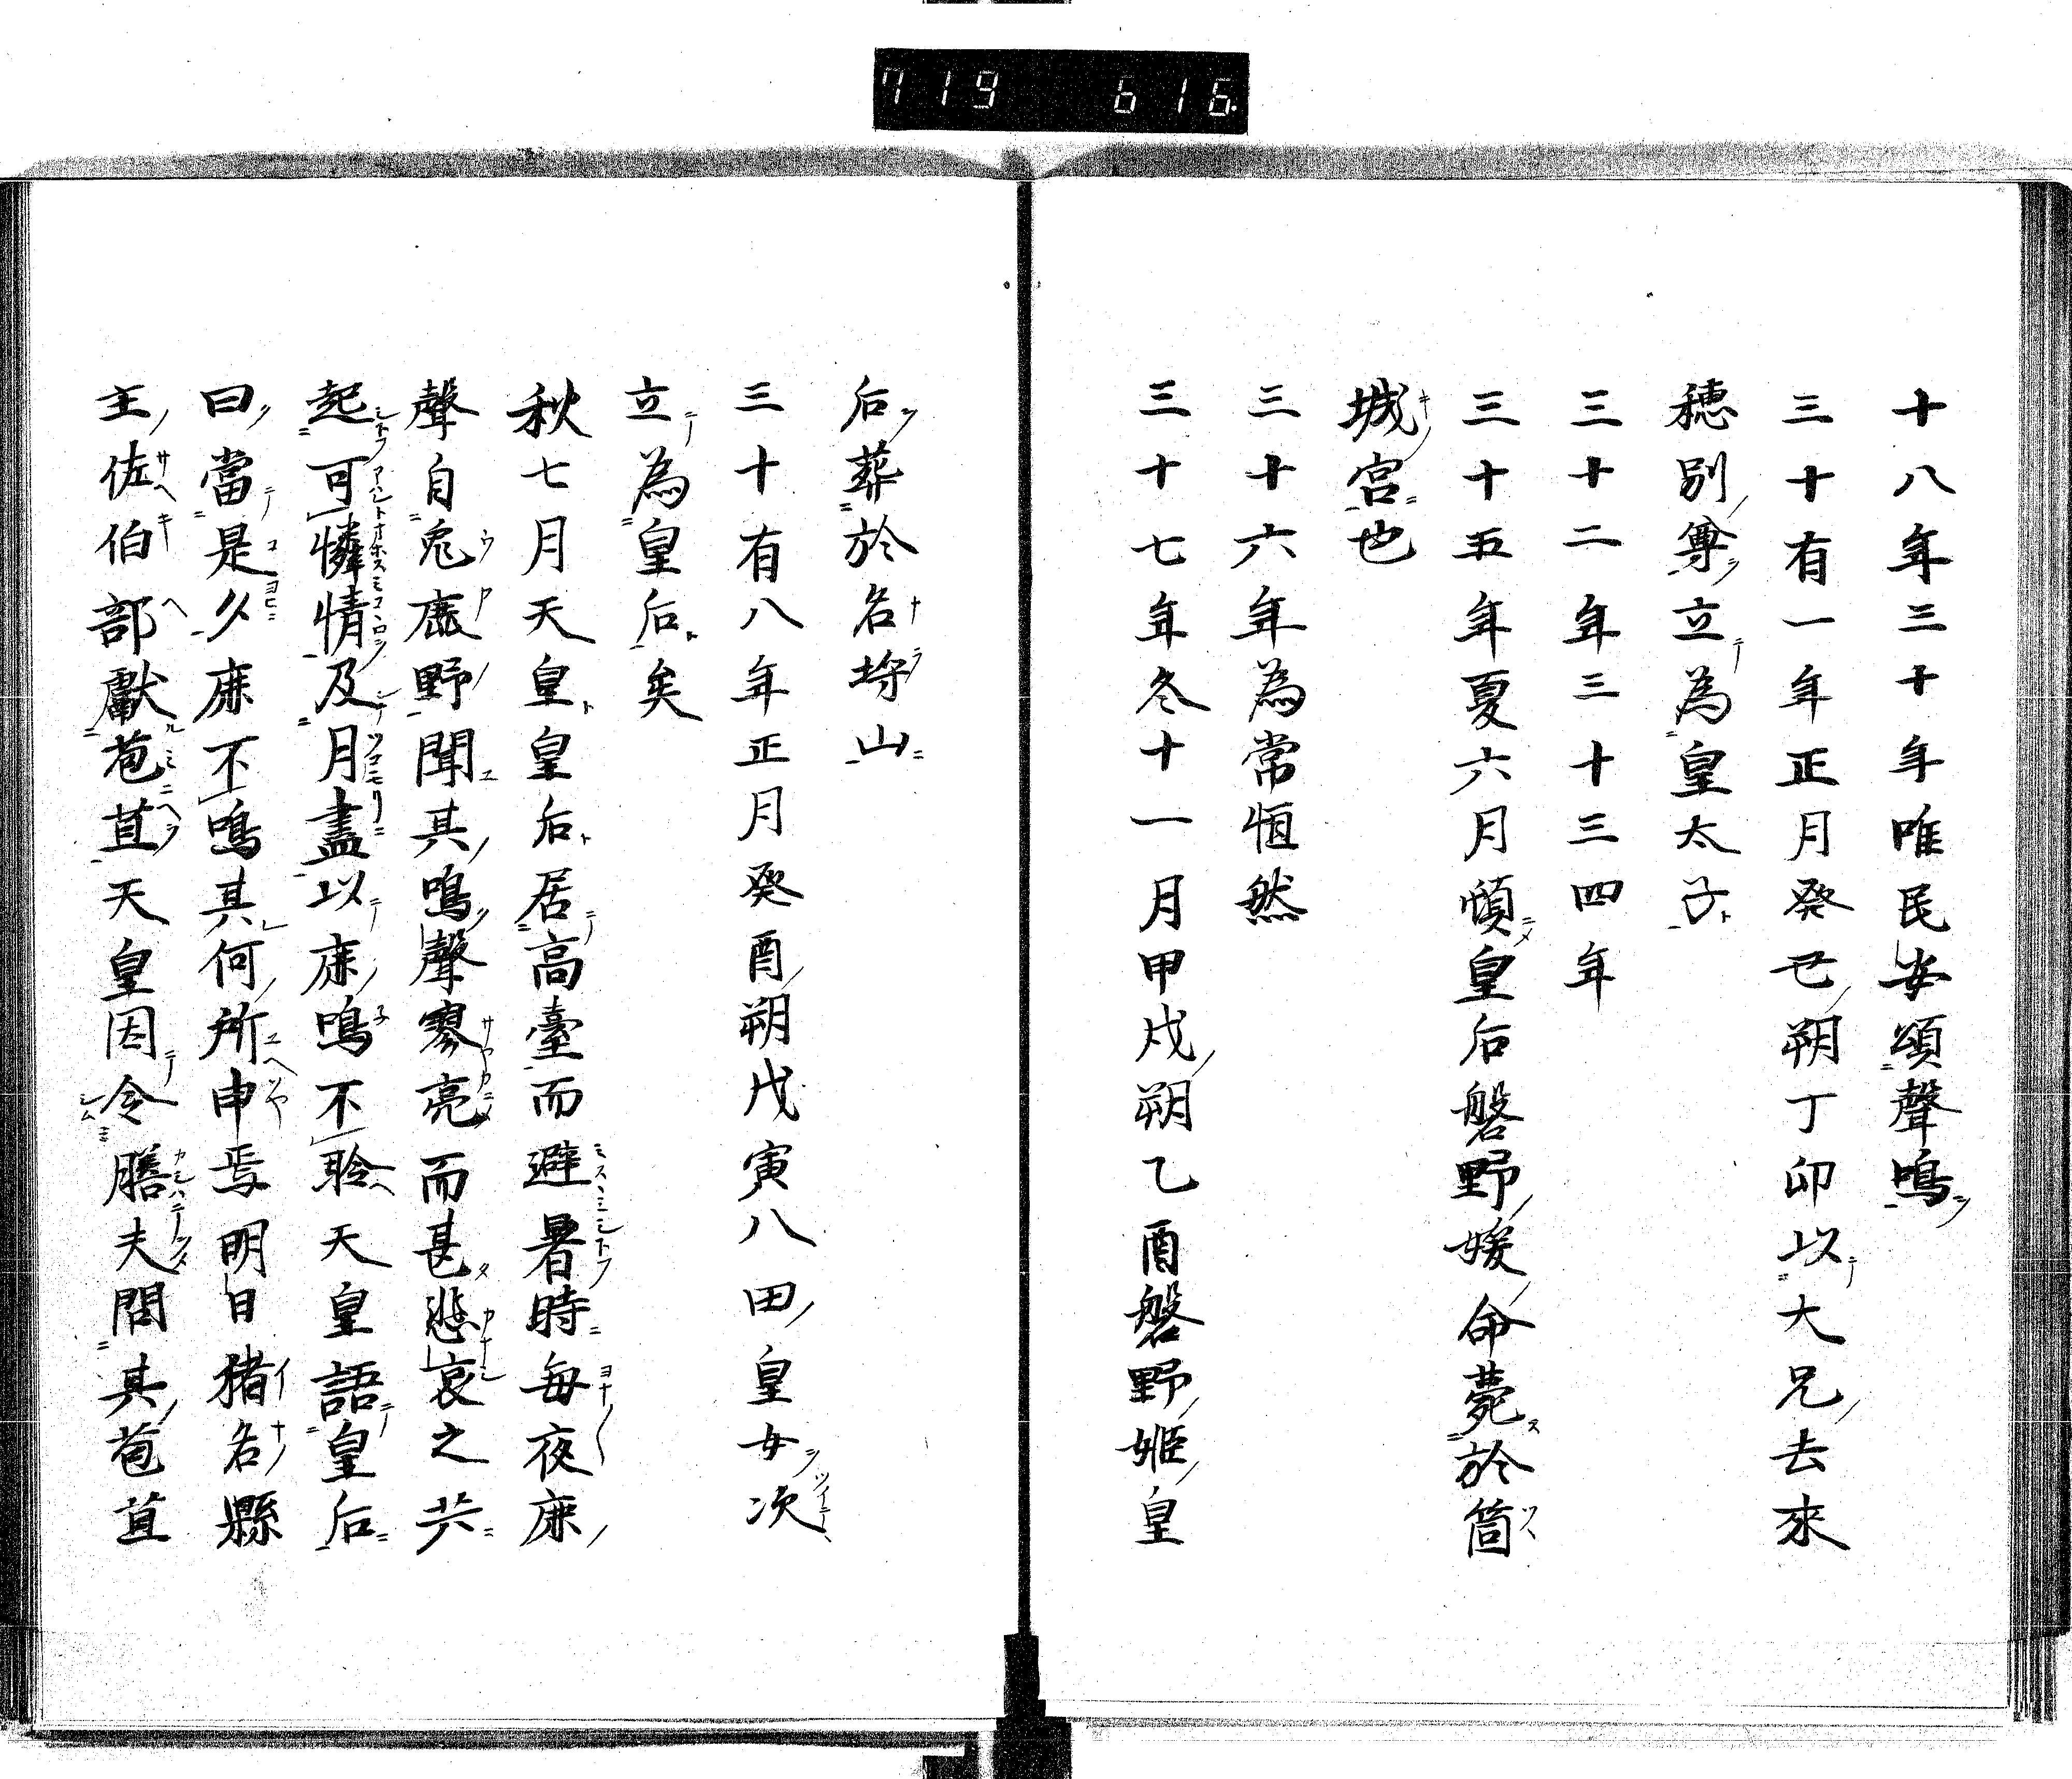 719 616.
十八年三十年唯民安頌聲鳴
三十有一年正月癸巳朔丁卯以大兄去來
穂別尊立為皇太子
三十二年三十三四年
三十五年夏六月頃皇后磐野媛命薨於筒
城宮也
三十六年為常恒然
三十七年冬十一月甲戌朔乙酉磐野姫皇
后葬於名埓山
三十有八年正月癸酉朔戊寅八田皇女次
立為皇后矣
秋七月天皇皇后居高臺而避暑時毎夜鹿
聲自兎鹿野聞其鳴聲寥亮而甚悲哀之共
起可憐情及月盡以鹿鳴不聆天皇語皇后
曰當是夕鹿不鳴其何所申焉明日猪名縣
主佐伯部獻苞苴天皇因令膳夫問其苞苴